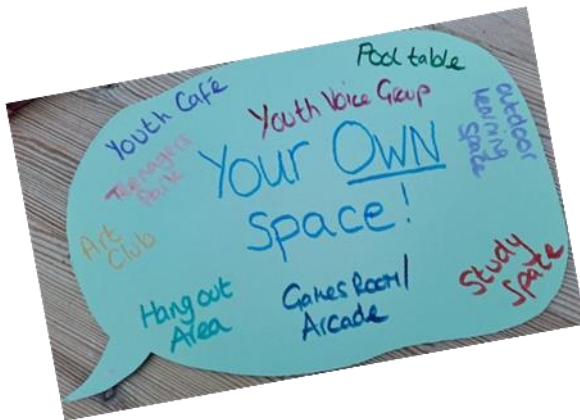 Pool table
Youth Café
Youth Voice Group
outdoor
learning
space
Teenagers
Park
Your OWN
Space!
Art
Club
Study
Space
Hang out
Area
Games Room/
Arcade